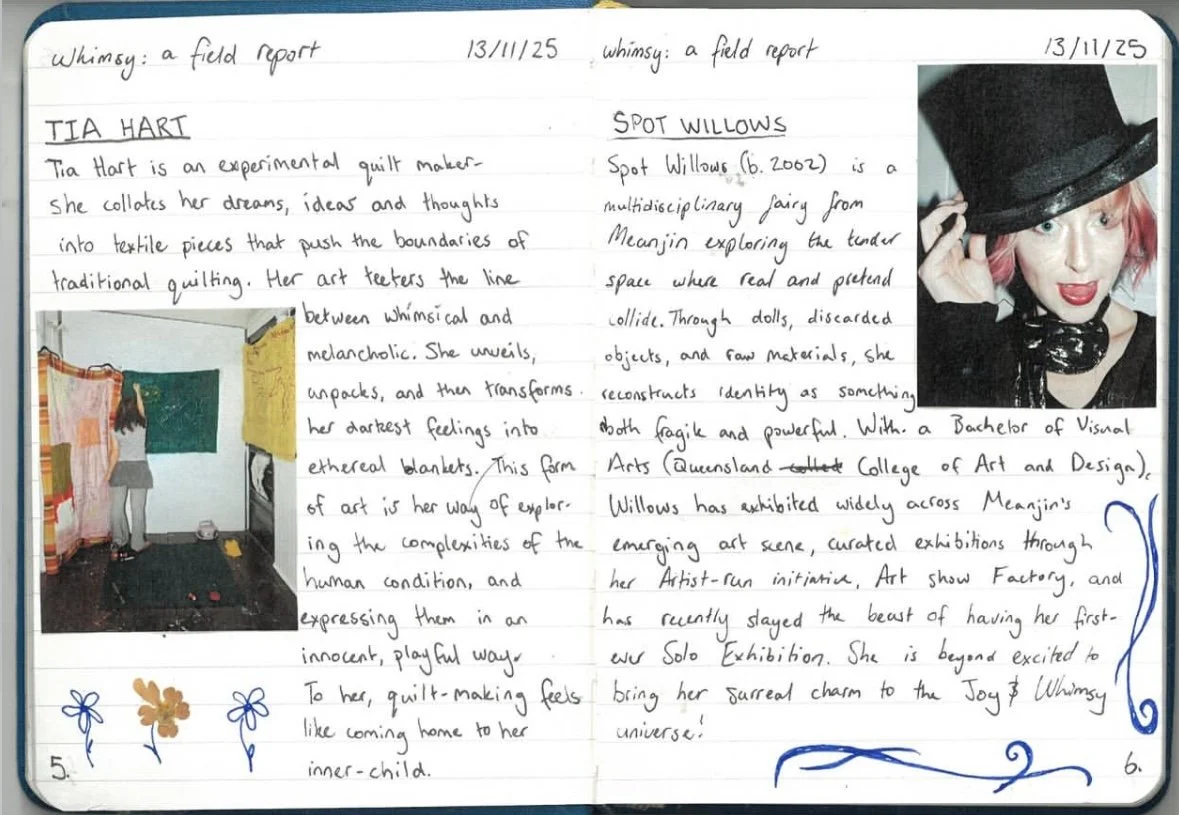 whimsy: a field report 13/11/25
TIA HART
Tia Hart is an experimental quilt maker-
she collates her dreams, ideas and thoughts
into textile pieces that push the boundaries of
traditional quilting. Her art teeters the line
between whimsical and
melancholic. She unveils,
unpacks, and then transforms
her darkest feelings into
ethereal blankets. This form
of art is her way of explor-
ing the complexities of the
human condition, and
expressing them in an
innocent, playful way.
To her, quilt-making feels
like coming home to her
inner-child.
5.
whimsy: a field report 13/11/25
SPOT WILLOWS
Spot Willows (b. 2002) is a
multidisciplinary fairy from
Meanjin exploring the tender
space where real and pretend
collide. Through dolls, discarded
objects, and raw materials, she
reconstructs identity as something
both fragile and powerful. With a Bachelor of Visual
Arts (Queensland College of Art and Design),
Willows has exhibited widely across Meanjin's
emerging art scene, curated exhibitions through
her Artist-run initiative, Art show Factory, and
has recently slayed the beast of having her first-
ever Solo Exhibition. She is beyond excited to
bring her surreal charm to the Joy & Whimsy
universe!
6.